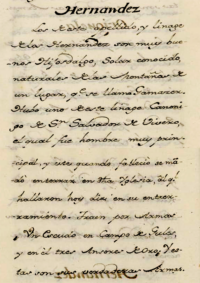 Hernandez
Los de este apellido, y linage
de los Hernandez son muy bue
nos Hijosdalgo, Solar conocido,
naturales de las Montañas de
un Lugar, qe. se llama Camaron.
Hubo uno de este linage Canoni
go de Sn. Salvador de Vivero,
el qual fue hombre muy prin
cipal, y este quando falleció se ma
dó enterrar en dha Iglesia, al qe.
hallaron hoy dia en su enterr
ramiento. Traen por Armas
Un Escudo en Campo de
y en él tres Ansares de Oro, y es
tas son sus verdaderas Armas.